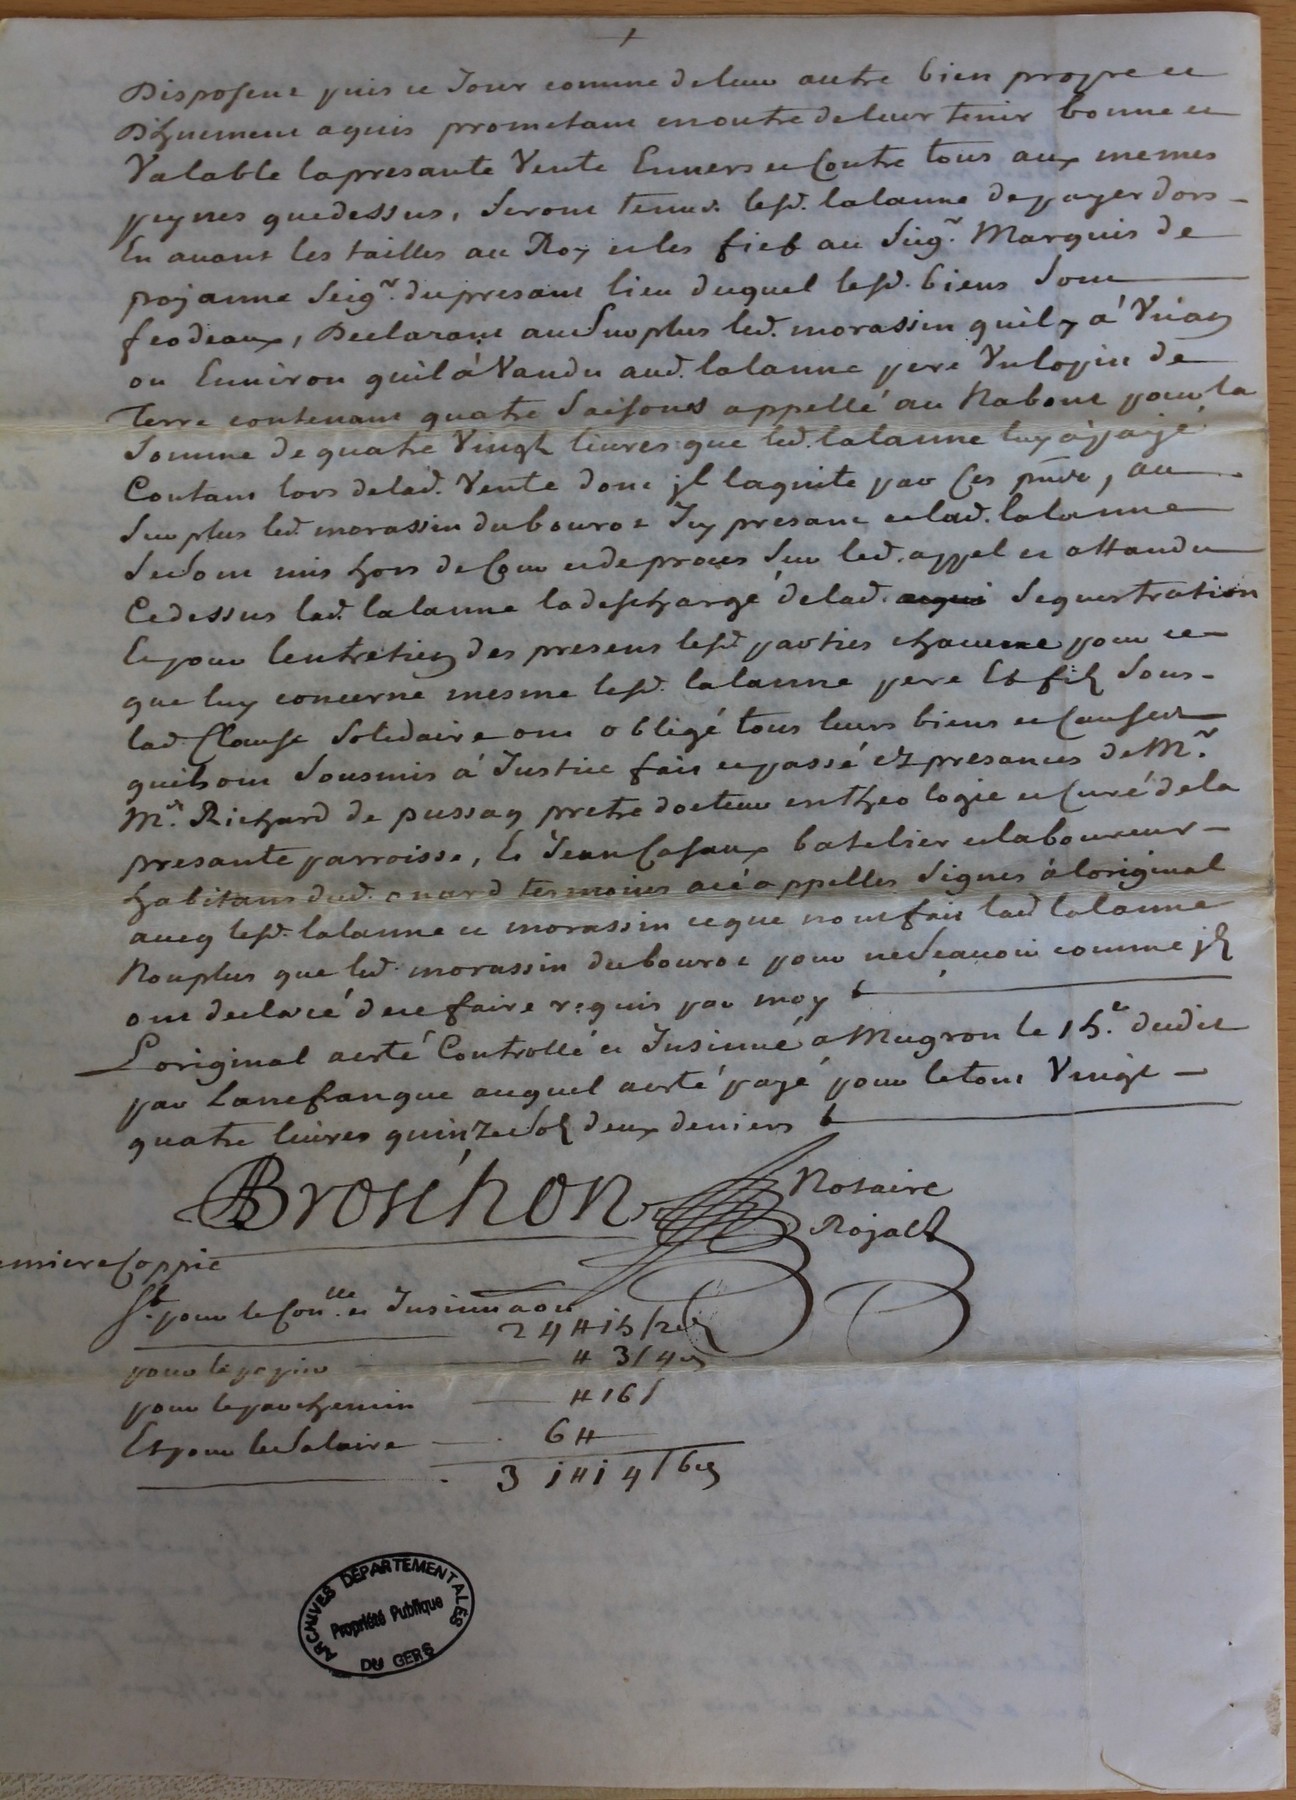 Disposent puis ce Jour comme de leur autre bien propre et
Dhuement aquis prometant en outre de leur tenir bonne et
Valable la presante Vente Enuers et Contre tous aux memes
peynes que dessus, Seront tenus lesd. lalanne de payer dors-
En auant les tailles au Roy et les fiefs au Seigr. Marquis de
pojanne Seigr. du presant lieu duquel lesd. biens Sont
feodeaux, Declarant au Surplus led. morassin quil y á Vn an
ou Enniron quil á Vandu aud. lalanne pere Vn lopin de
Terre contenant quatre Saisons appellé au Nabout pour la
Somme de quatre Vingt liures que led. lalanne luy á payé
Contant lors de lad. Vente dont jl laquite par Ces pnte, au
Surplus led. morassin du bouroe Jcy presant et lad. lalanne
Se Sont mis hors de Cour et de proces Sur led. appel et attandu
Cedessus lad. lalanne la descharge de lad. Sequestration
Et pour lentretien des presens lesd parties chacune pour ce
que luy concerne mesme lesd. lalanne pere Et fils Sous-
lad. Clause Solidaire ont obligé tous leurs biens et causes
quils ont Sousmis á Justice fait et passé ez presances de Mr.
Mr. Richard de pussan pretre docteur en theologie et Curé de la
presante parroisse, Et Jean Casaux batelier et laboureur-
habitans dud. onard temoins a ce appelles Signes á loriginal
aueq lesd. lalanne et morassin ce que nont fait lad lalanne
Non plus que led. morassin du bouroe pour ne Scauoir comme jls
ont declaré de ce faire requis par moy
Loriginal a esté Controllé et Insinué a Mugron le 15e. dudit
par Lanefranque auquel a esté payé pour le tout Vingt-
quatre liures quinze Sols deux deniers
Broschon Notaire
Royal
emiere Coppie
St. pour le Conlle. et Insinuaon
24 ₶ 15 s 2 ds
pour le papier ₶ 3 s 4 ds
pour le parchemin ₶ 16 s
Et pour le Salaire 6 ₶
31 ₶ 14 s 6 ds
ARCHIVES DÉPARTEMENTALES
Propriété Publique
DU GERS